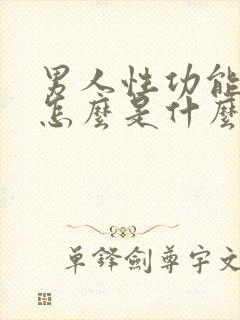 男人性功能
怎麼是什麼
單鋒劍尊宇文